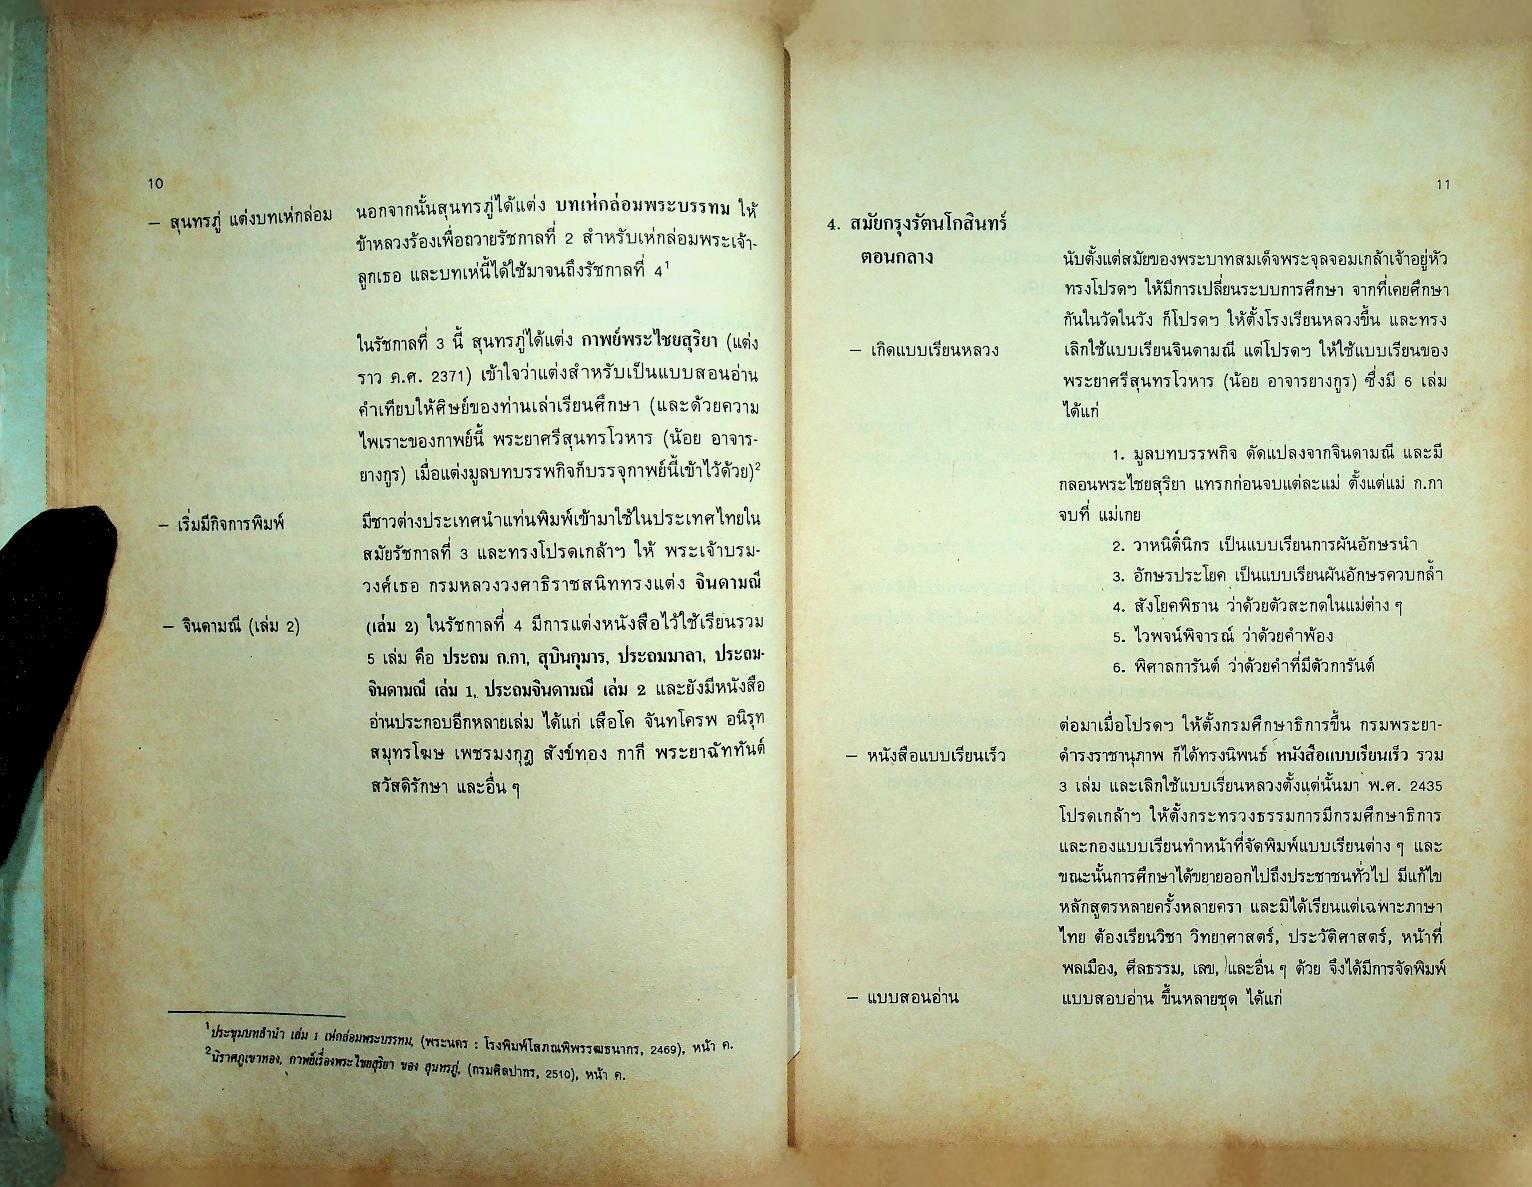 10
– สุนทรภู่ แต่งบทเห่กล่อม นอกจากนั้นสุนทรภู่ได้แต่ง บทเห่กล่อมพระบรรทม ให้
ข้าหลวงร้องเพื่อถวายรัชกาลที่ 2 สำหรับเห่กล่อมพระเจ้า-
ลูกเธอ และบทเห่นี้ได้ใช้มาจนถึงรัชกาลที่ 4¹
ในรัชกาลที่ 3 นี้ สุนทรภู่ได้แต่ง กาพย์พระไชยสุริยา (แต่ง
ราว ค.ศ. 2371) เข้าใจว่าแต่งสำหรับเป็นแบบสอนอ่าน
คำเทียบให้ศิษย์ของท่านเล่าเรียนศึกษา (และด้วยความ
ไพเราะของกาพย์นี้ พระยาศรีสุนทรโวหาร (น้อย อาจาร-
ยางกูร) เมื่อแต่งมูลบทบรรพกิจก็บรรจุกาพย์นี้เข้าไว้ด้วย)²
– เริ่มมีกิจการพิมพ์ มีชาวต่างประเทศนำแท่นพิมพ์เข้ามาใช้ในประเทศไทยใน
สมัยรัชกาลที่ 3 และทรงโปรดเกล้าฯ ให้ พระเจ้าบรม-
วงศ์เธอ กรมหลวงวงศาธิราชสนิททรงแต่ง จินดามณี
– จินดามณี (เล่ม 2) (เล่ม 2) ในรัชกาลที่ 4 มีการแต่งหนังสือไว้ใช้เรียนรวม
5 เล่ม คือ ประถม ก.กา, สุบินกุมาร, ประถมมาลา, ประถม-
จินดามณี เล่ม 1, ประถมจินดามณี เล่ม 2 และยังมีหนังสือ
อ่านประกอบอีกหลายเล่ม ได้แก่ เสือโค จันทโครพ อนิรุท
สมุทรโฆษ เพชรมงกุฎ สังข์ทอง กากี พระยาฉัททันต์
สวัสดิรักษา และอื่น ๆ
¹ประชุมบทลำนำ เล่ม 1 เห่กล่อมพระบรรทม, (พระนคร : โรงพิมพ์โสภณพิพรรฒธนากร, 2469), หน้า ค.
²นิราศภูเขาทอง, กาพย์เรื่องพระไชยสุริยา ของ สุนทรภู่, (กรมศิลปากร, 2510), หน้า ค.
11
4. สมัยกรุงรัตนโกสินทร์
ตอนกลาง นับตั้งแต่สมัยของพระบาทสมเด็จพระจุลจอมเกล้าเจ้าอยู่หัว
ทรงโปรดฯ ให้มีการเปลี่ยนระบบการศึกษา จากที่เคยศึกษา
กันในวัดในวัง ก็โปรดฯ ให้ตั้งโรงเรียนหลวงขึ้น และทรง
– เกิดแบบเรียนหลวง เลิกใช้แบบเรียนจินดามณี แต่โปรดฯ ให้ใช้แบบเรียนของ
พระยาศรีสุนทรโวหาร (น้อย อาจารยางกูร) ซึ่งมี 6 เล่ม
ได้แก่
1. มูลบทบรรพกิจ ดัดแปลงจากจินดามณี และมี
กลอนพระไชยสุริยา แทรกก่อนจบแต่ละแม่ ตั้งแต่แม่ ก.กา
จบที่ แม่เกย
2. วาหนิติ์นิกร เป็นแบบเรียนการผันอักษรนำ
3. อักษรประโยค เป็นแบบเรียนผันอักษรควบกล้ำ
4. สังโยคพิธาน ว่าด้วยตัวสะกดในแม่ต่าง ๆ
5. ไวพจน์พิจารณ์ ว่าด้วยคำพ้อง
6. พิศาลการันต์ ว่าด้วยคำที่มีตัวการันต์
ต่อมาเมื่อโปรดฯ ให้ตั้งกรมศึกษาธิการขึ้น กรมพระยา-
– หนังสือแบบเรียนเร็ว ดำรงราชานุภาพ ก็ได้ทรงนิพนธ์ หนังสือแบบเรียนเร็ว รวม
3 เล่ม และเลิกใช้แบบเรียนหลวงตั้งแต่นั้นมา พ.ศ. 2435
โปรดเกล้าฯ ให้ตั้งกระทรวงธรรมการมีกรมศึกษาธิการ
และกองแบบเรียนทำหน้าที่จัดพิมพ์แบบเรียนต่าง ๆ และ
ขณะนั้นการศึกษาได้ขยายออกไปถึงประชาชนทั่วไป มีแก้ไข
หลักสูตรหลายครั้งหลายครา และมิได้เรียนแต่เฉพาะภาษา
ไทย ต้องเรียนวิชา วิทยาศาสตร์, ประวัติศาสตร์, หน้าที่
พลเมือง, ศีลธรรม, เลข, และอื่น ๆ ด้วย จึงได้มีการจัดพิมพ์
– แบบสอนอ่าน แบบสอบอ่าน ขึ้นหลายชุด ได้แก่